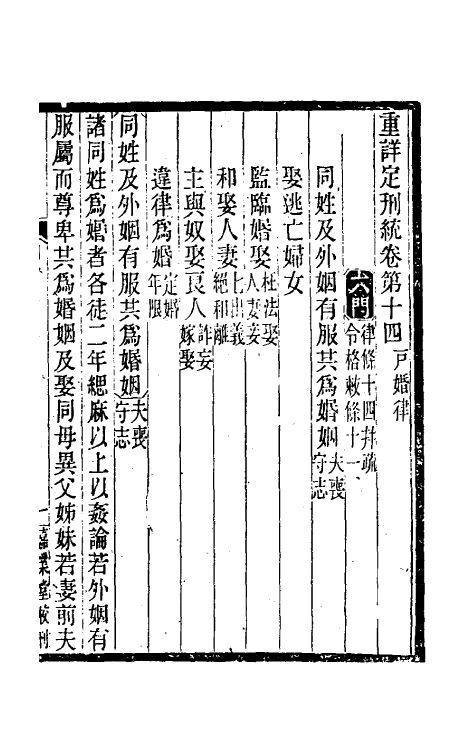 重詳定刑統卷第十四 戸婚律
六門 律條十四并疏
令格敕條十一
同姓及外姻有服共爲婚姻 夫喪
守志
娶逃亡婦女
監臨婚娶 枉法娶
人妻妾
和娶人妻 七出義
絕和離
主與奴娶良人 詐妄
嫁娶
違律爲婚 定婚
年限
同姓及外姻有服共爲婚姻 夫喪
守志
諸同姓爲婚者各徒二年緦麻以上以姦論若外姻有
服屬而尊卑共爲婚姻及娶同母異父姊妹若妻前夫
一 嘉業堂校刊